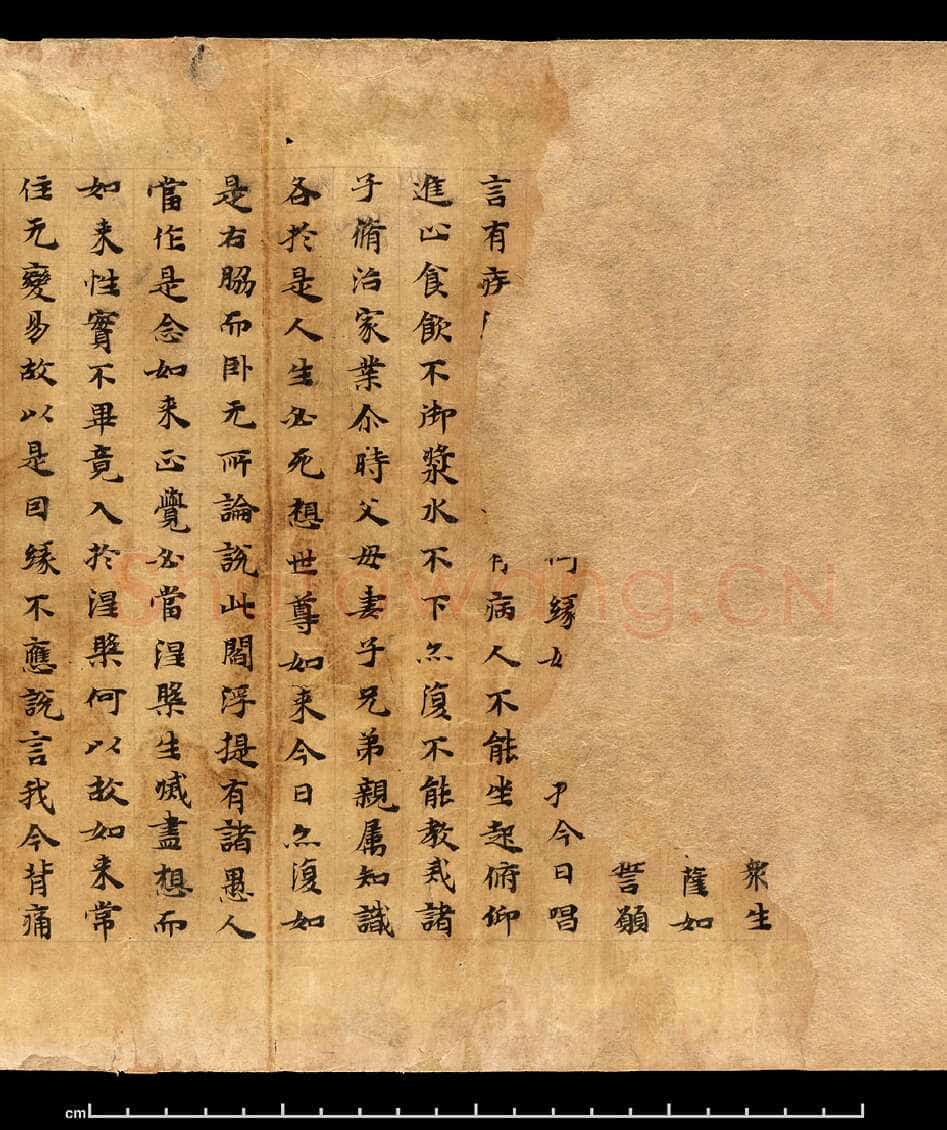 衆生
隆如
誓願
何緣 今日唱
言有疾 病人不能坐起俯仰
進止食飲不御漿水不下亦復不能教戒諸
子脩治家業尒時父母妻子兄弟親属知識
各於是人生必死想世尊如来今日亦復如
是右脇而卧无所論說此閻浮提有諸愚人
當作是念如来正覺必當涅槃生滅盡想而
如来性實不畢竟入於涅槃何以故如来常
住无變易故以是因緣不應說言我今背痛
Shufawang.CN
cm